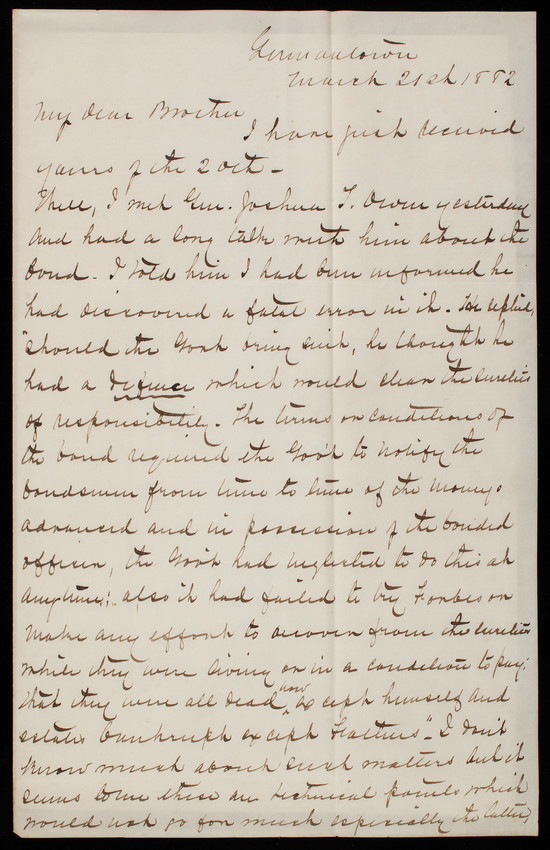 Germantown
March 21st 1882
My dear Brother
I have just received
yours of the 20th -
Well, I met Gen. Joshua T. Owen yesterday
and had a long talk with him about the
bond. I told him I had been informed he
had discovered a fatal error in it. He replied,
"should the Gov't bring suit, he thought he
had a defence which would clear the sureties
of responsibility. The terms or conditions of
the bond required the Gov't to notify the
bondsmen from time to time of the moneys
advanced and in possession of the bonded
officer, the Gov't had neglected to do this at
anytime; also it had failed to try Forbes or
make any effort to recover from the sureties
while they were living or in a condition to pay;
that they were all dead now except himself and
estates bankrupt except". I don't
know much about such matters but it
seems to me these are technical points which
would not go for much especially the latter,